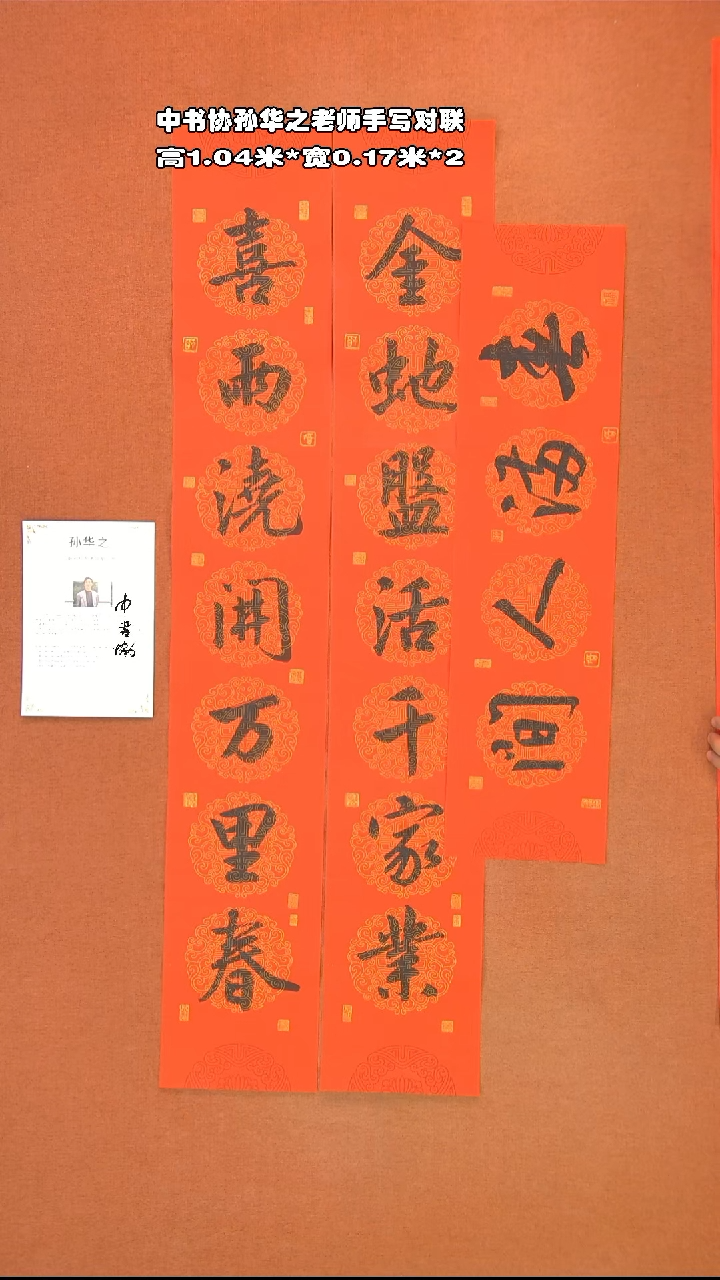 中书协孙华之老师手写对联
高1.04米*宽0.17米*2
金虵盤活千家業
喜雨澆開万里春
春满人间
孙华之